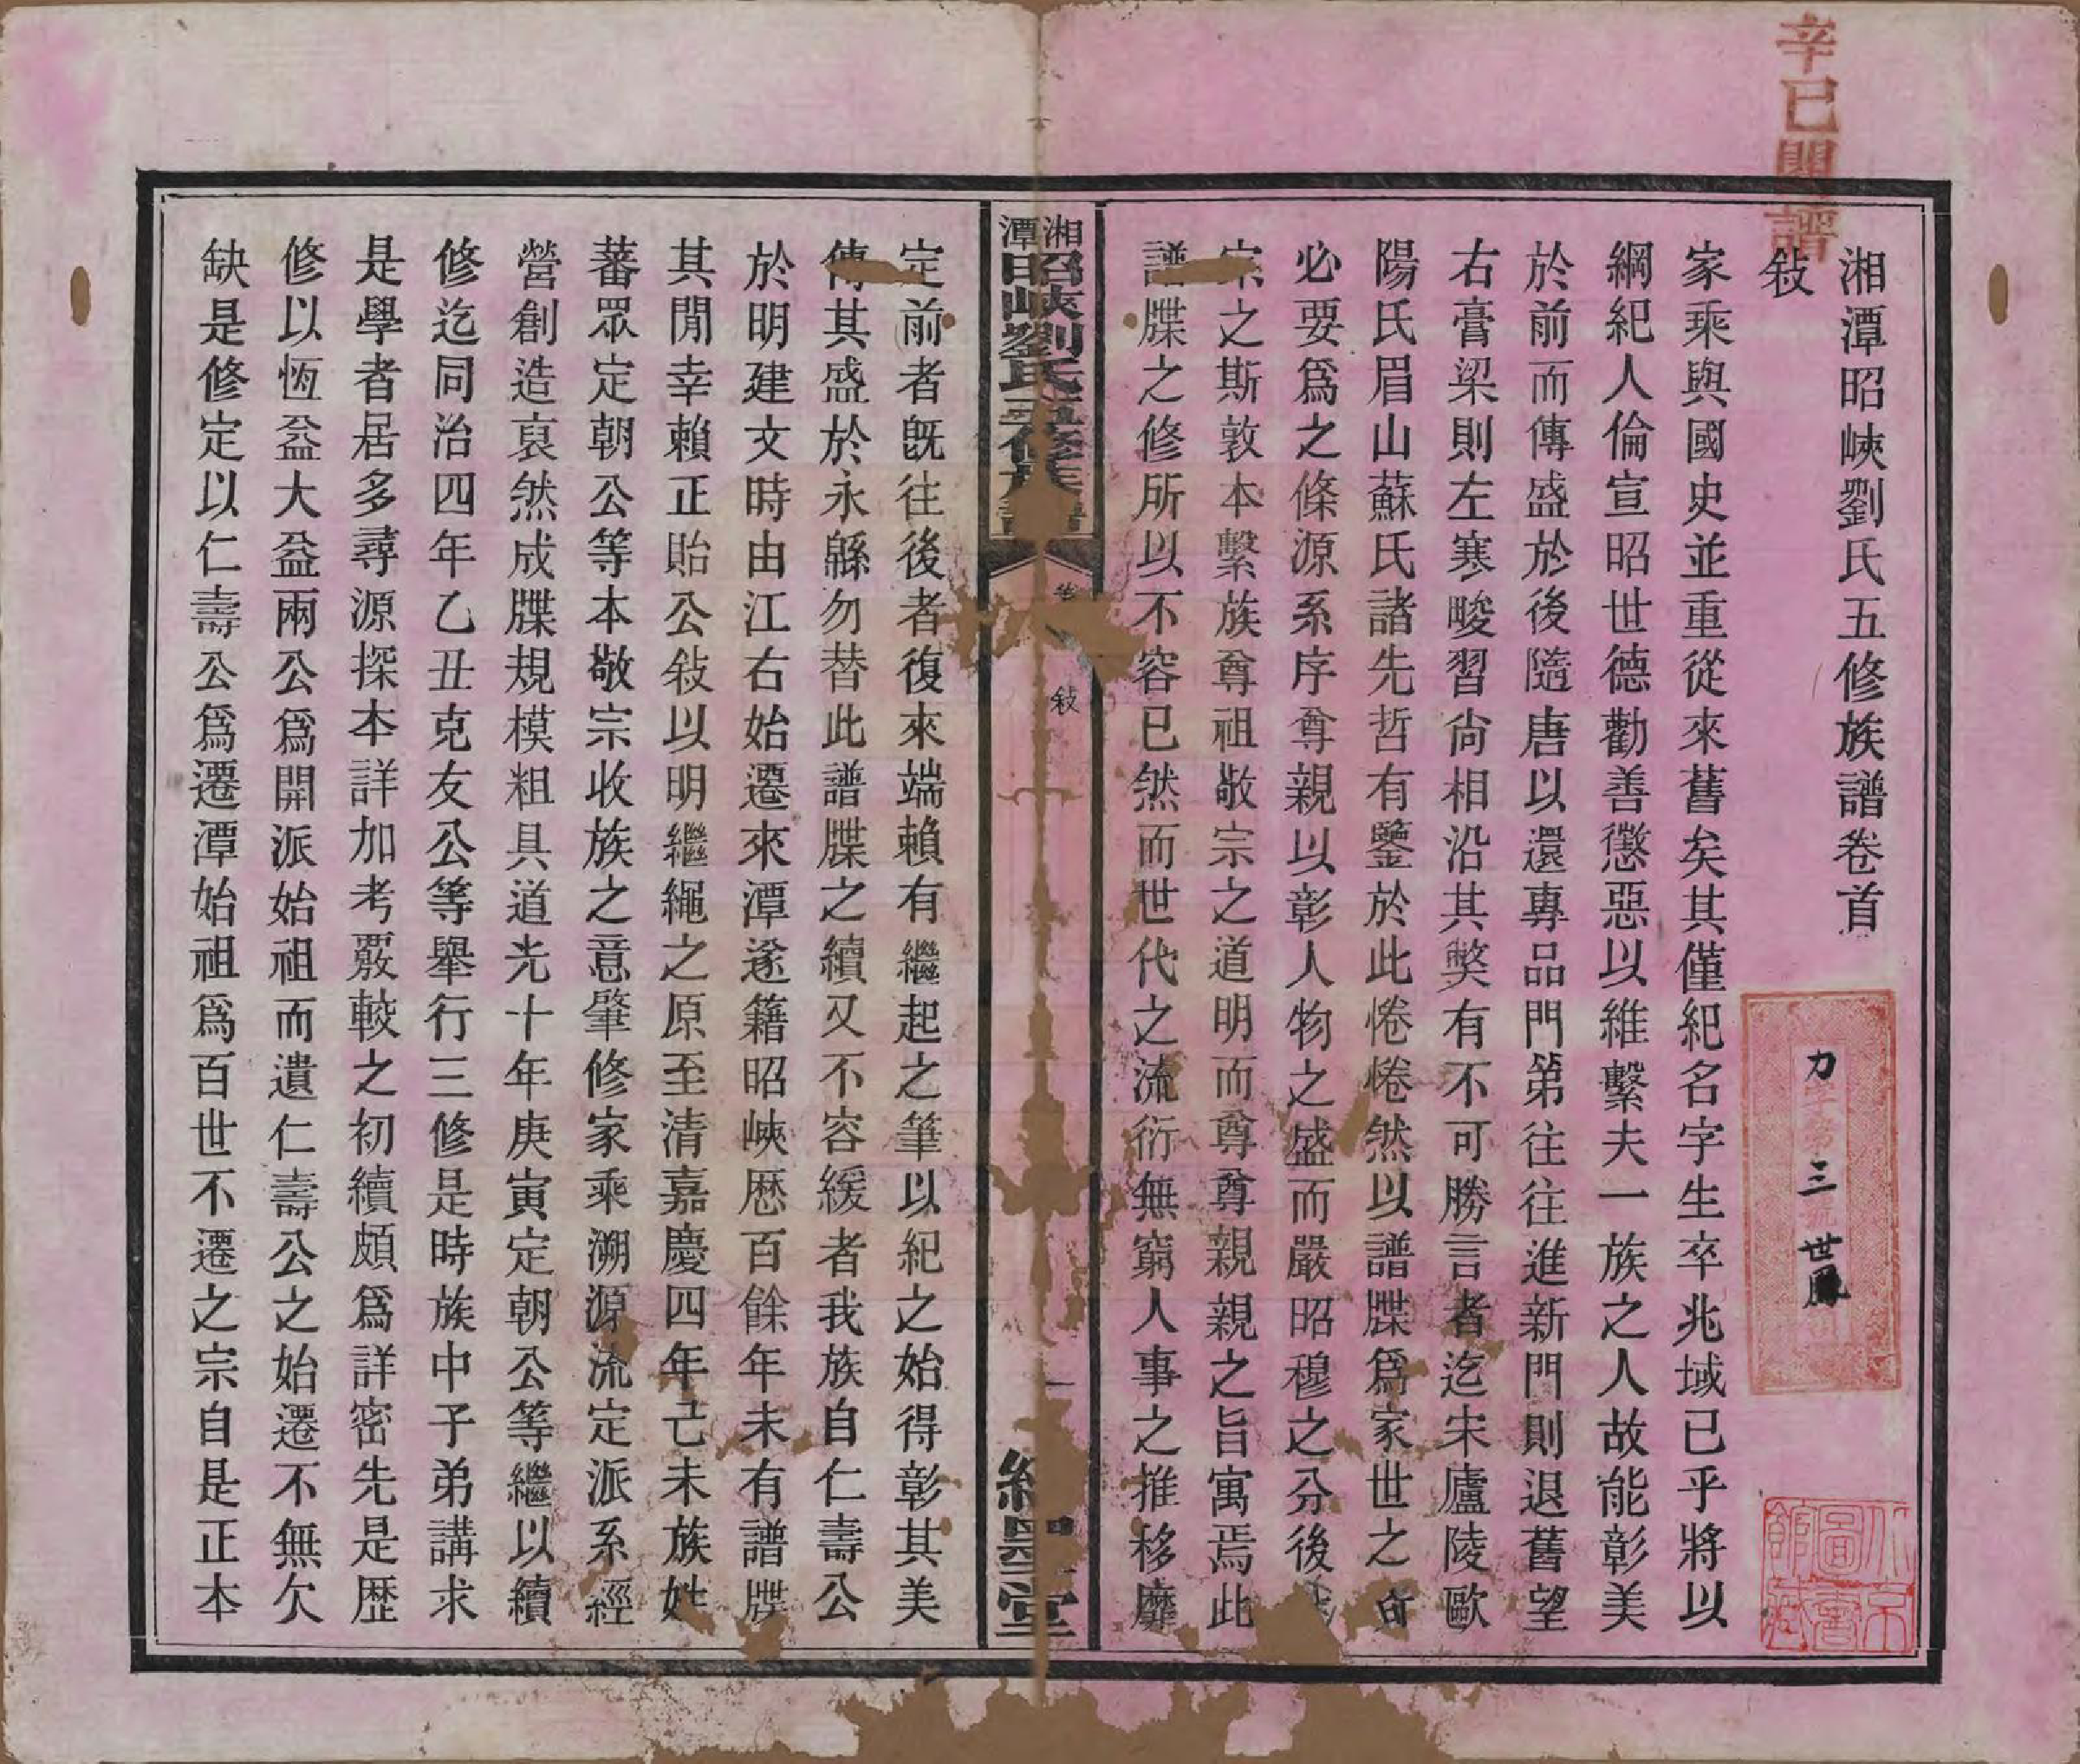 辛巳閤譜
湘潭昭峽劉氏五修族譜卷首
敍
力字第三號世鳳
家乘與國史並重從來舊矣其僅紀名字生卒兆域已乎將以
綱紀人倫宣昭世德勸善懲惡以維繫夫一族之人故能彰美
於前而傳盛於後隨唐以還專品門第往往進新門則退舊望
右膏梁則左寒畯習尙相沿其獘有不可勝言者迄宋廬陵歐
陽氏眉山蘇氏諸先哲有鑒於此惓惓然以譜牒爲家世之所
必要爲之條源系序尊親以彰人物之盛而嚴昭穆之分後
宗之斯敦本繫族尊祖敬宗之道明而尊尊親親之旨寓焉此
譜牒之修所以不容已然而世代之流衍無窮人事之推移靡
湘潭昭峽劉氏五修族譜
敍
一
定前者旣往後者復來端賴有繼起之筆以紀之始得彰其美
傳其盛於永緜勿替此譜牒之續又不容緩者我族自仁壽公
於明建文時由江右始遷來潭遂籍昭峽歷百餘年未有譜牒
其閒幸賴正貽公敍以明繼繩之原至清嘉慶四年己未族姓
蕃眾定朝公等本敬宗收族之意肇修家乘溯源流定派系經
營創造裒然成牒規模粗具道光十年庚寅定朝公等繼以續
修迄同治四年乙丑克友公等舉行三修是時族中子弟講求
是學者居多尋源探本詳加考覈較之初續頗爲詳密先是歷
修以恆益大益兩公爲開派始祖而遺仁壽公之始遷不無欠
缺是修定以仁壽公爲遷潭始祖爲百世不遷之宗自是正本
北京圖書館藏